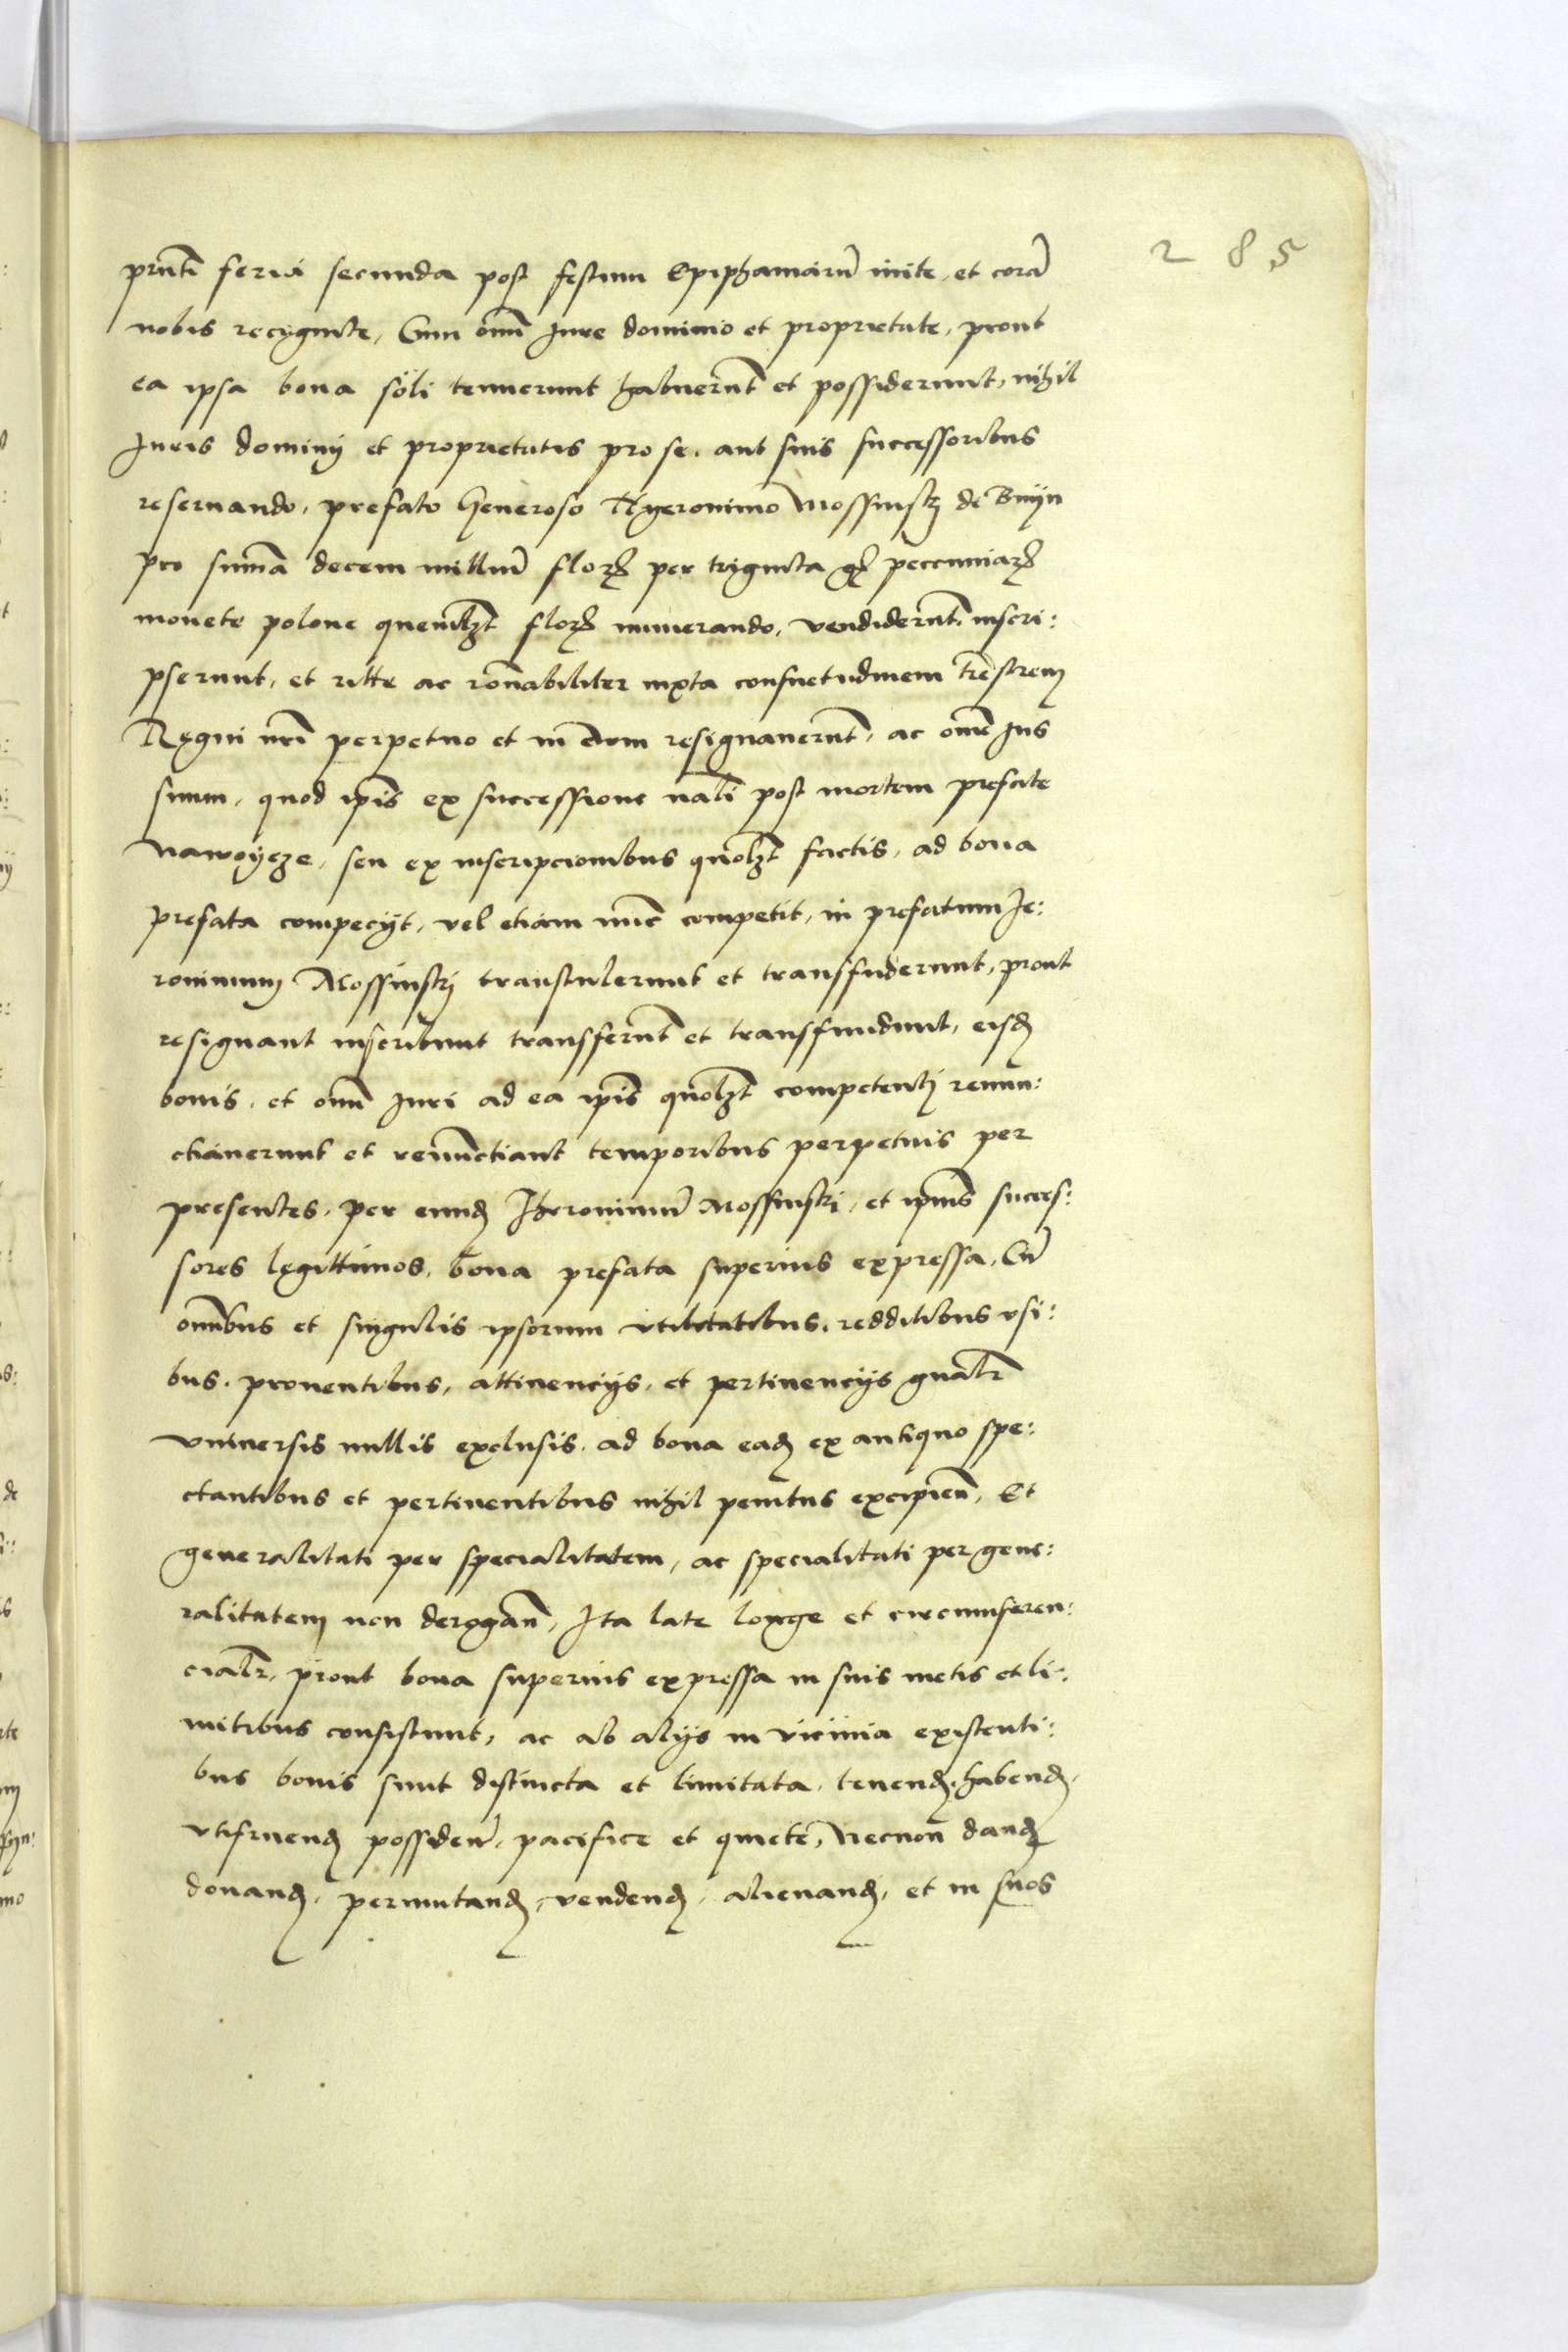 285
prnti feria secunda post festum Epiphaniarū inite, et corā
nobis recognite, Cum omī Iure dominio et proprietate, prout
ea ipsa bona soli tenuerunt habuerūt et possiderunt, nihil
Iuris dominij et proprietatis pro se, aut suis successoribus
reseruando, prefato Generoso Hyeronimo Mossinskj de Bnijn
pro sumā decem milliū florꝝ per triginta gr̄ pecuniarꝝ
monete polone quemlꝫt florꝝ numerando, vendiderūt, inscri:
pserunt, et ritte ac ronabiliter iuxta consuetudinem tr̄estrem
Regni nrī perpetuo et in ewm resignauerūt, ac omē Ius
suum, quod ipīs ex successione nālī post mortem prefate
Nawoycze, seu ex inscripcionibus quolꝫt factis, ad bona
prefata compecijt, vel etiam nūc competit, in prefatum Ie:
ronimum Mossinskj transtulerunt et transfuderunt, prout
resignant inscribunt transferūt et transfundunt, eisdꝫ
bonis, et omī Iuri ad ea ipīs quolꝫt competentj renun:
ctiauerunt et renunctiant temporibus perpetuis per
presentes, per eundꝫ Iheronimū Mossinski, et ipīus succes:
sores legittimos, bona prefata superius expressa, Cū
omībus et singulis ipsorum vtilitatibus, redditibus vsi:
bus, prouentibus, attinencijs, et pertinencijs gnālr̄
vniuersis nullis exclusis, ad bona eadꝫ ex antiquo spe:
ctantibus et pertinentibus nihil penitus excipieñ, Et
generalitati per specialitatem, ac specialitati per gene:
ralitatem non derogañ, Ita late longe et circumferen:
cialr̄, prout bona superius expressa in suis metis et li:
mitibus consistunt, ac ab alijs in vicinia existenti:
bus bonis sunt distincta et limitata, tenendꝫ, habendꝫ,
vtifruendꝫ possideñ, pacifice et quiete, Necnon dandꝫ
donandꝫ, permutandꝫ, vendendꝫ, alienandꝫ, et in suos